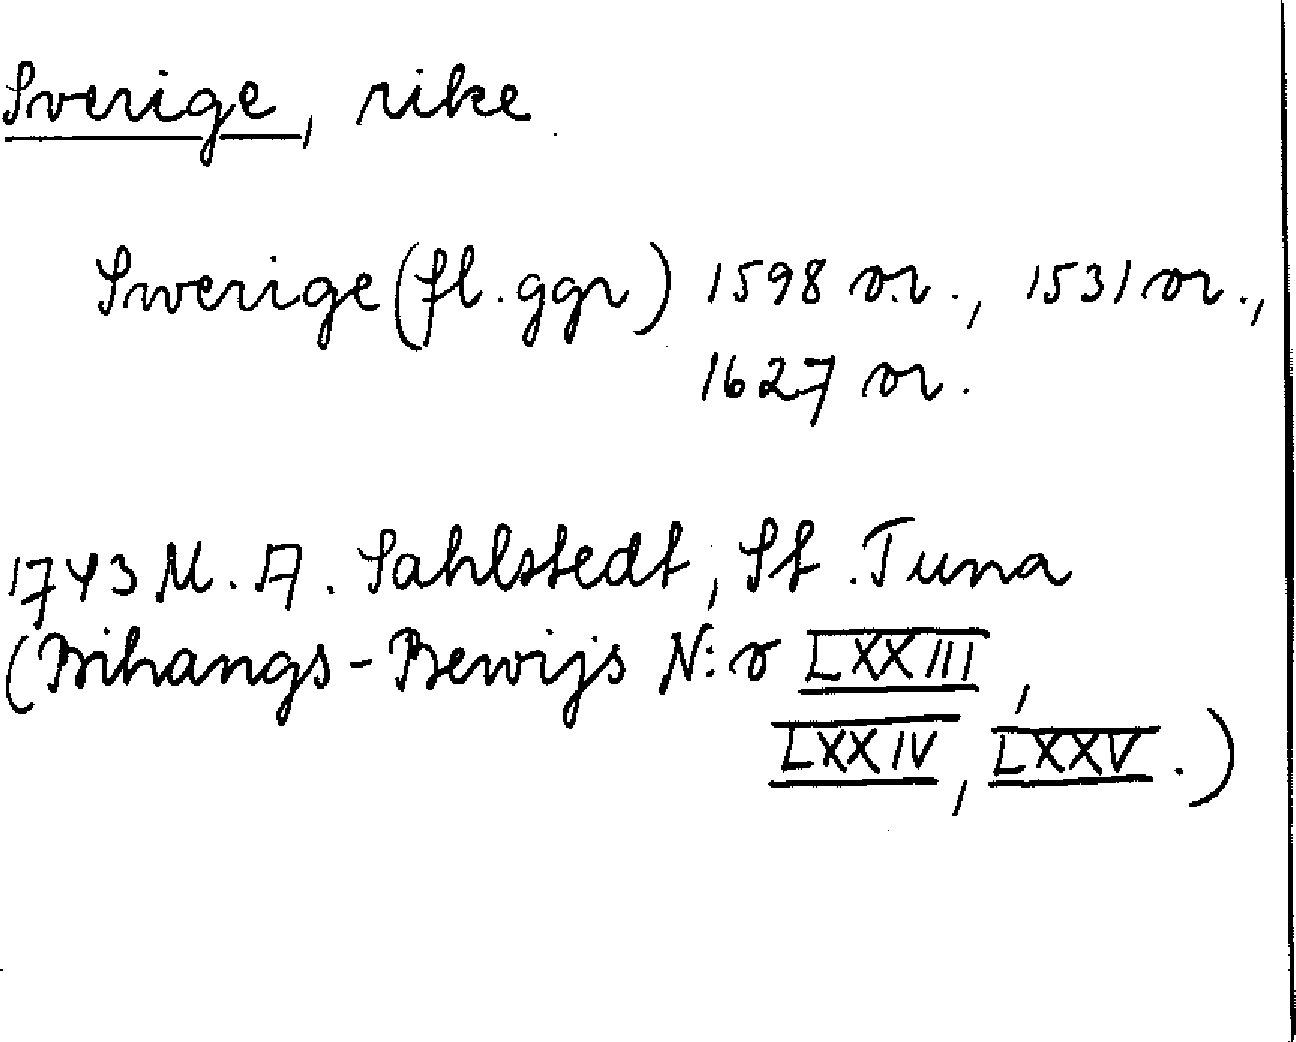 Sverige, rike
Swerige (fl. ggr) 1598 or., 1531 or.,
1627 or.
1743 M. A. Sahlstedt, St. Tuna
(Bihangs-Bewijs N:r LXXIII,
LXXIV, LXXV.)